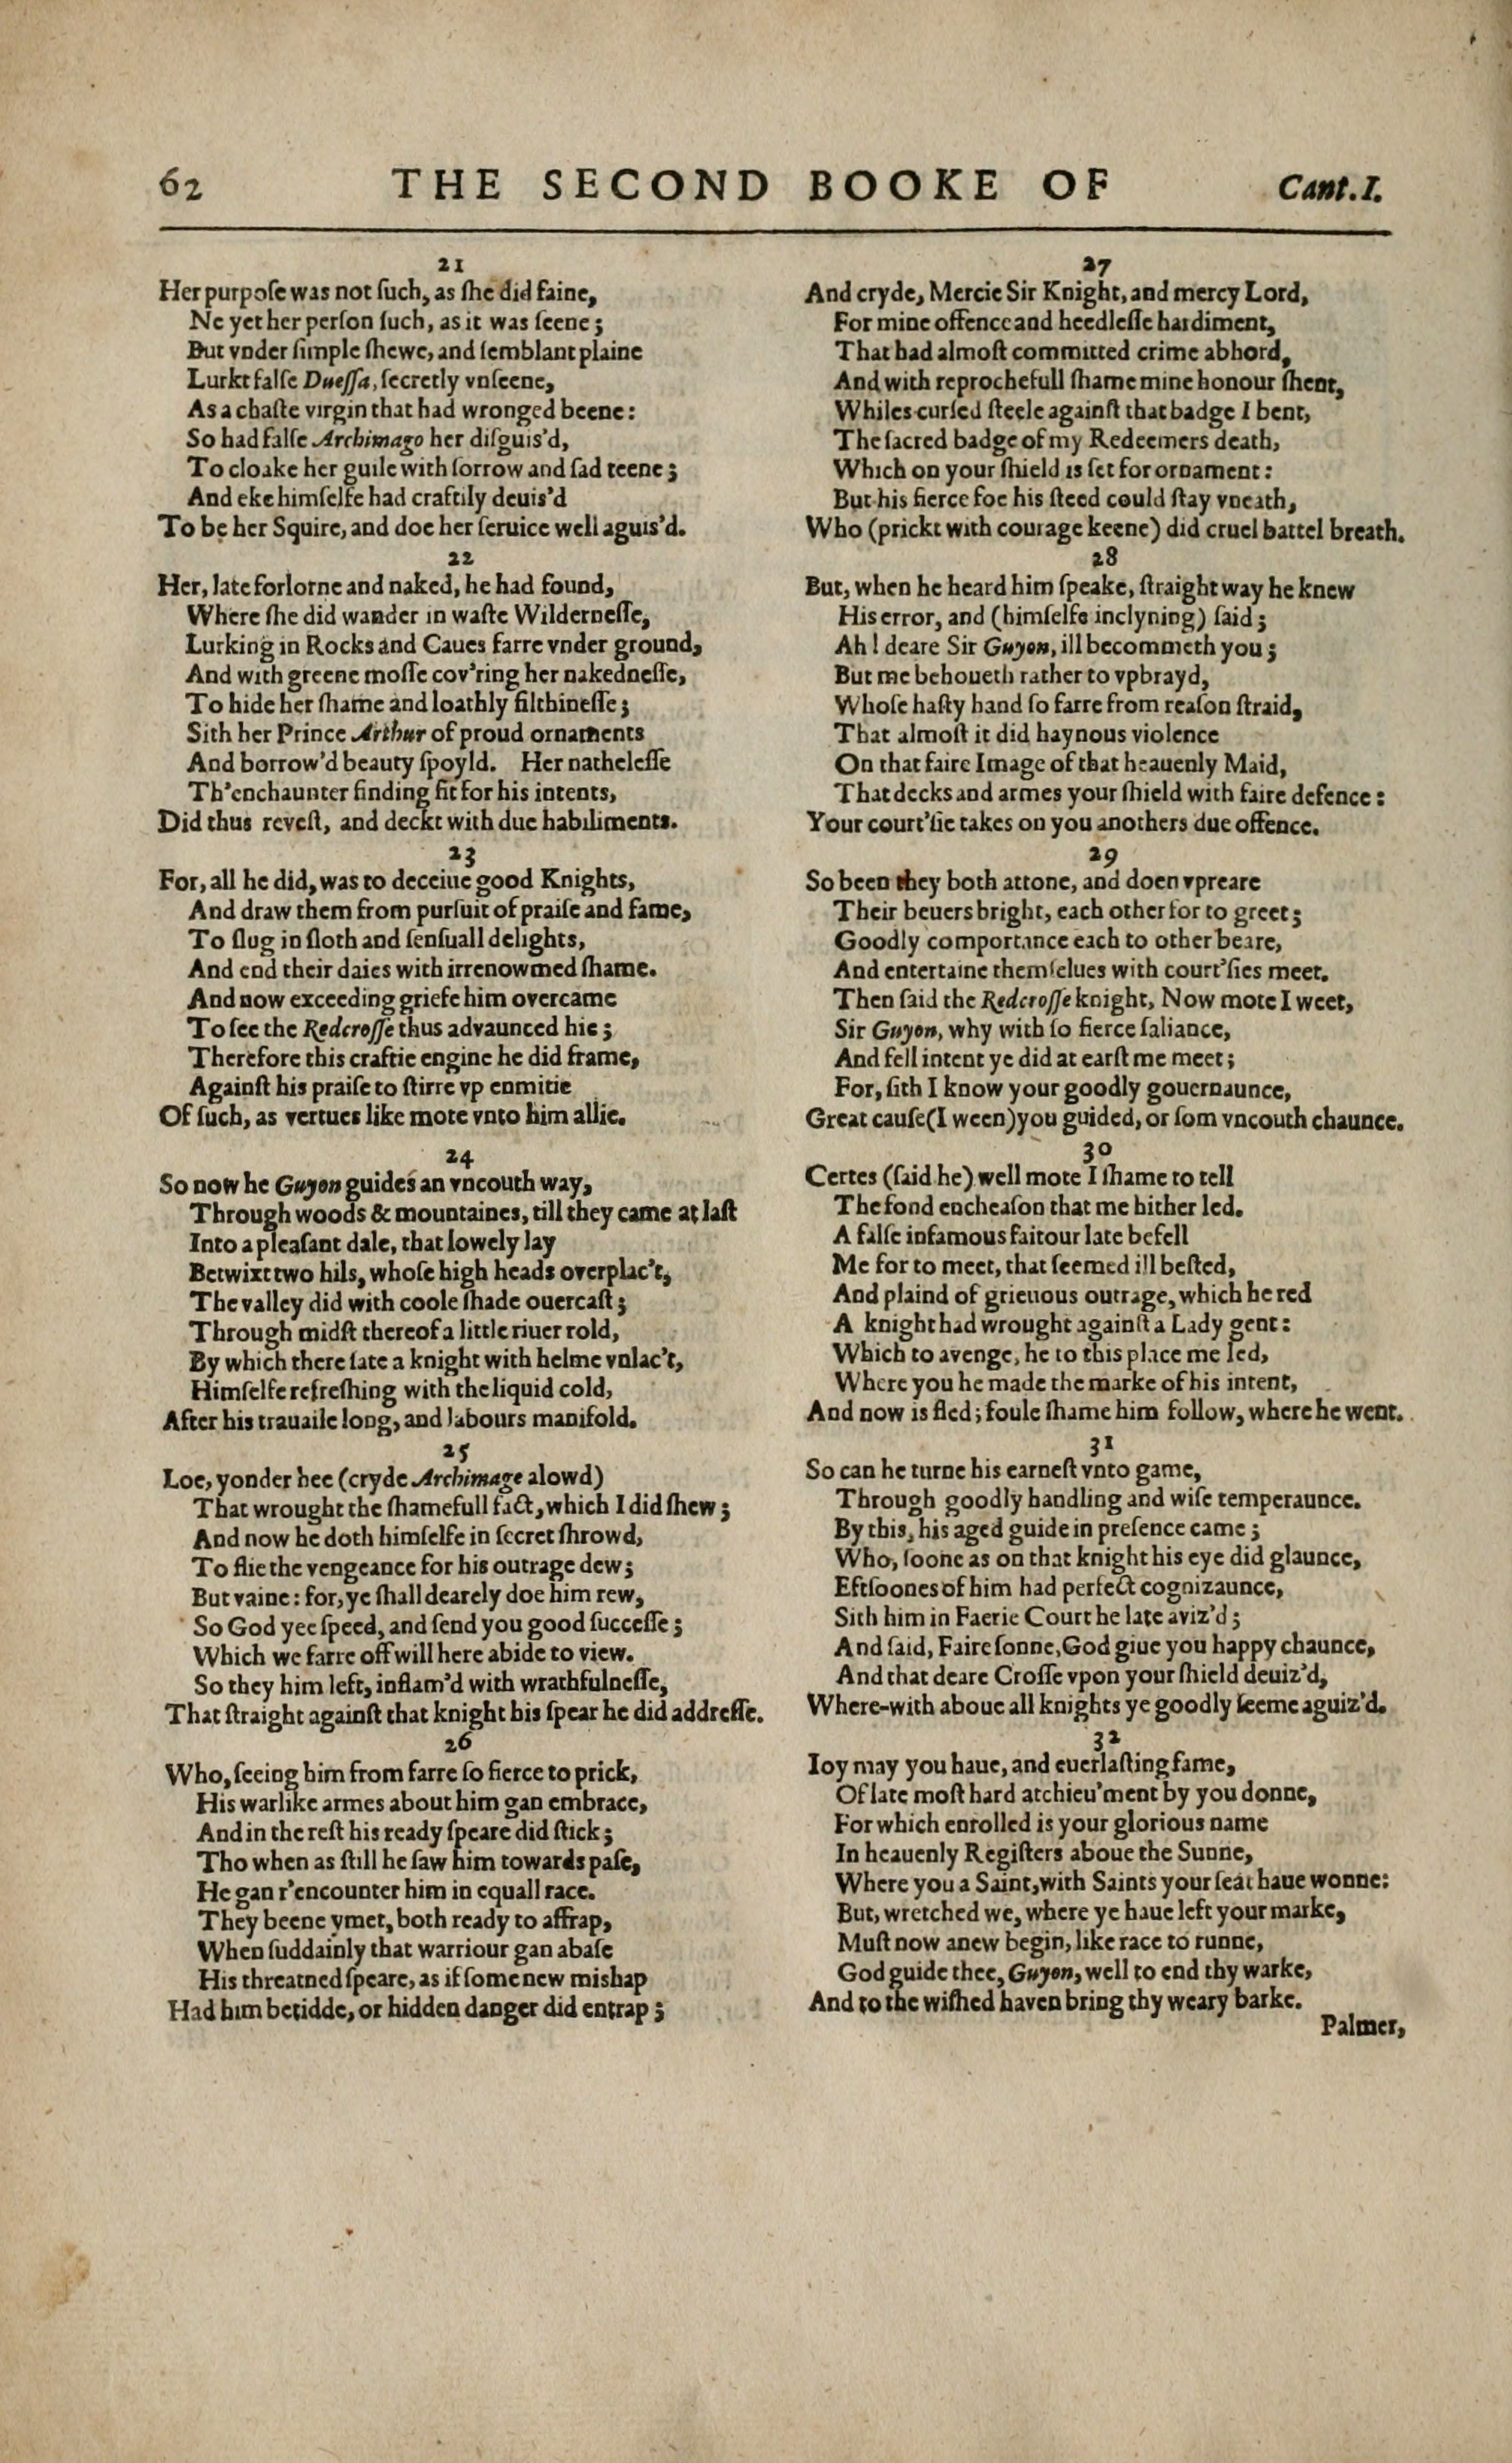 62 THE SECOND BOOKE OF Cant.I.
21
Her purpoſe was not ſuch, as ſhe did faine,
Ne yet her perſon ſuch, as it was ſeene;
But vnder ſimple ſhewe, and ſemblant plaine
Lurkt falſe Dueſſa, ſecretly vnſeene,
As a chaſte virgin that had wronged beene:
So had falſe Archimago her diſguis'd,
To cloake her guile with ſorrow and ſad teene;
And eke himſelfe had craftily deuis'd
To be her Squire, and doe her ſeruice well aguis'd.
22
Her, late forlorne and naked, he had found,
Where ſhe did wander in waſte Wilderneſſe,
Lurking in Rocks and Caues farre vnder ground,
And with greene moſſe cov'ring her nakedneſſe,
To hide her ſhame and loathly filthineſſe;
Sith her Prince Arthur of proud ornaments
And borrow'd beauty ſpoyld. Her natheleſſe
Th'enchaunter finding fit for his intents,
Did thus reveſt, and deckt with due habiliments.
23
For, all he did, was to deceiue good Knights,
And draw them from purſuit of praiſe and fame,
To ſlug in ſloth and ſenſuall delights,
And end their daies with irrenowmed ſhame.
And now exceeding griefe him overcame
To ſee the Redcroſſe thus advaunced hie;
Therefore this craftie engine he did frame,
Againſt his praiſe to ſtirre vp enmitie
Of ſuch, as vertues like mote vnto him allie.
24
So now he Guyon guides an vncouth way,
Through woods & mountaines, till they came at laſt
Into a pleaſant dale, that lowely lay
Betwixt two hils, whoſe high heads overplac't,
The valley did with coole ſhade ouercaſt;
Through midſt thereof a little riuer rold,
By which there ſate a knight with helme vnlac't,
Himſelfe refreſhing with the liquid cold,
After his trauaile long, and labours manifold.
25
Loe, yonder hee (cryde Archimage alowd)
That wrought the ſhamefull fact, which I did ſhew;
And now he doth himſelfe in ſecret ſhrowd,
To flie the vengeance for his outrage dew;
But vaine: for, ye ſhall dearely doe him rew,
So God yee ſpeed, and ſend you good ſucceſſe;
Which we farre off will here abide to view.
So they him left, inflam'd with wrathfulneſſe,
That ſtraight againſt that knight his ſpear he did addreſſe.
26
Who, ſeeing him from farre ſo fierce to prick,
His warlike armes about him gan embrace,
And in the reſt his ready ſpeare did ſtick;
Tho when as ſtill he ſaw him towards paſe,
He gan r'encounter him in equall race.
They beene ymet, both ready to affrap,
When ſuddainly that warriour gan abaſe
His threatned ſpeare, as if ſome new mishap
Had him betidde, or hidden danger did entrap;
27
And cryde, Mercie Sir Knight, and mercy Lord,
For mine offence and heedleſſe hardiment,
That had almoſt committed crime abhord,
And with reprochefull ſhame mine honour ſhent,
Whiles curſed ſteele againſt that badge I bent,
The ſacred badge of my Redeemers death,
Which on your ſhield is ſet for ornament:
But his fierce foe his ſteed could ſtay vneath,
Who (prickt with courage keene) did cruel battel breath.
28
But, when he heard him ſpeake, ſtraight way he knew
His error, and (himſelfe inclyning) ſaid;
Ah! deare Sir Guyon, ill becommeth you;
But me behoueth rather to vpbrayd,
Whoſe haſty hand ſo farre from reaſon ſtraid,
That almoſt it did haynous violence
On that faire Image of that heauenly Maid,
That decks and armes your ſhield with faire defence:
Your court'ſie takes on you anothers due offence.
29
So been they both attone, and doen vpreare
Their beuers bright, each other for to greet;
Goodly comportance each to other beare,
And entertaine themſelues with court'ſies meet.
Then ſaid the Redcroſſe knight, Now mote I weet,
Sir Guyon, why with ſo fierce ſaliance,
And fell intent ye did at earſt me meet;
For, ſith I know your goodly gouernaunce,
Great cauſe (I ween) you guided, or ſom vncouth chaunce.
30
Certes (ſaid he) well mote I ſhame to tell
The fond encheaſon that me hither led.
A falſe infamous faitour late befell
Me for to meet, that ſeemed ill beſted,
And plaind of grieuous outrage, which he red
A knight had wrought againſt a Lady gent:
Which to avenge, he to this place me led,
Where you he made the marke of his intent,
And now is fled; foule ſhame him follow, where he went.
31
So can he turne his earneſt vnto game,
Through goodly handling and wiſe temperaunce.
By this, his aged guide in preſence came;
Who, ſoone as on that knight his eye did glaunce,
Eftſoones of him had perfect cognizaunce,
Sith him in Faerie Court he late aviz'd;
And ſaid, Faire ſonne, God giue you happy chaunce,
And that deare Croſſe vpon your ſhield deuiz'd,
Where-with aboue all knights ye goodly ſeeme aguiz'd.
32
Ioy may you haue, and euerlaſting fame,
Of late moſt hard atchieu'ment by you donne,
For which enrolled is your glorious name
In heauenly Regiſters aboue the Sunne,
Where you a Saint, with Saints your ſeat haue wonne:
But, wretched we, where ye haue left your marke,
Muſt now anew begin, like race to runne,
God guide thee, Guyon, well to end thy warke,
And to the wiſhed haven bring thy weary barke.
Palmer,